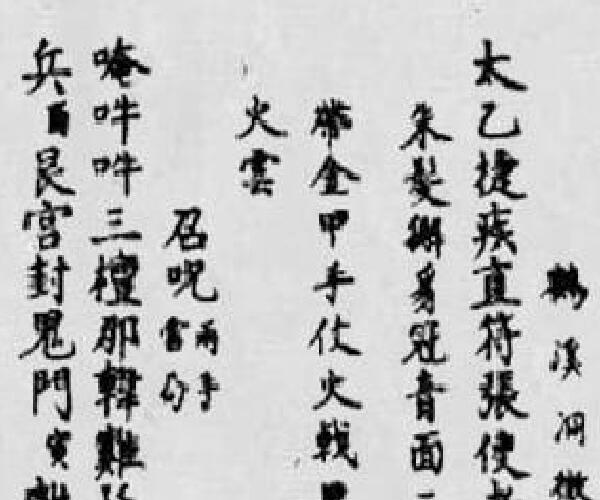 鶴溪洞微
太乙捷疾直符張使
朱髮獬身冠音面
帶金甲手仗火戟
火雲
召呪兩手雷勾
唵吽吽三檀那韓難
兵酉艮宮封鬼門寅